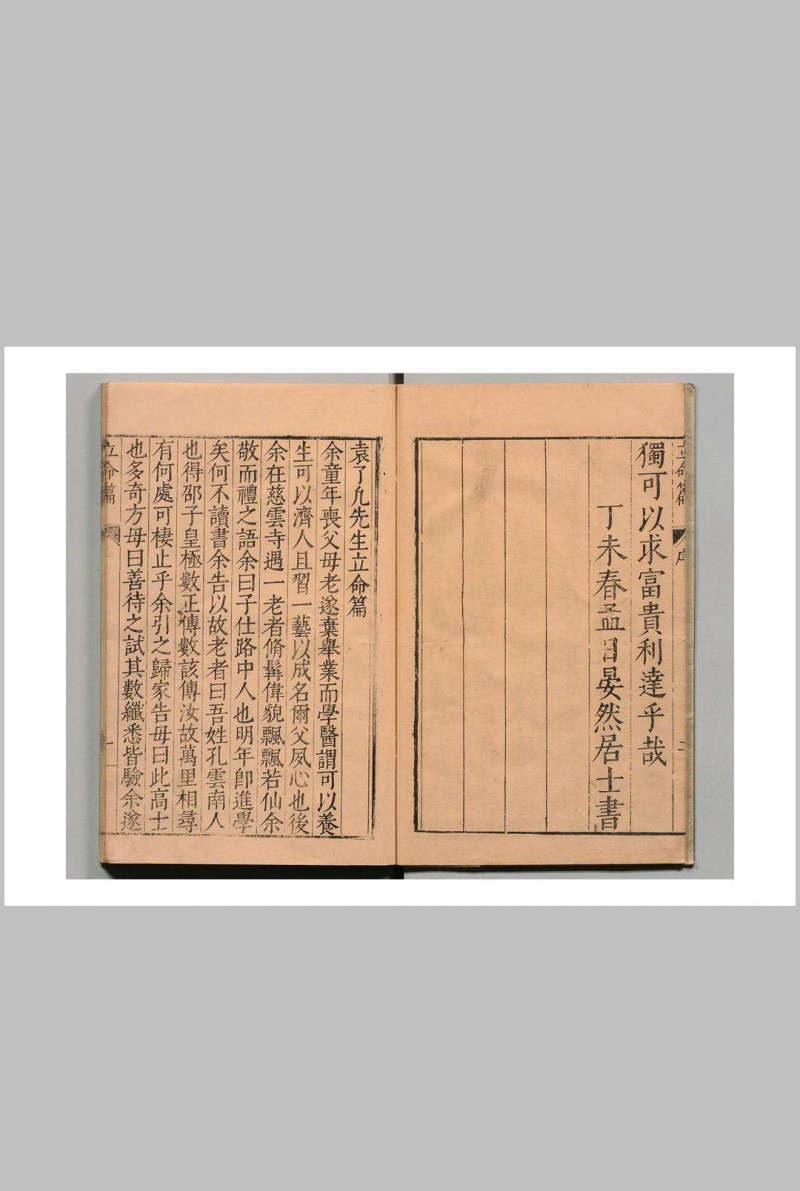 獨可以求富貴利達乎哉
丁未春孟日晏然居士書
立命篇
序
二
袁了凡先生立命篇
余童年喪父母老遂棄舉業而學醫謂可以養
生可以濟人且習一藝以成名爾父夙心也後
余在慈雲寺遇一老者脩髯偉貌飄飄若仙余
敬而禮之語余曰子仕路中人也明年卽進學
矣何不讀書余告以故老者曰吾姓孔雲南人
也得邵子皇極數正傳數該傳汝故萬里相尋
有何處可棲止乎余引之歸家告母曰此高士
也多奇方母曰善待之試其數纖悉皆驗余遂
立命篇
一